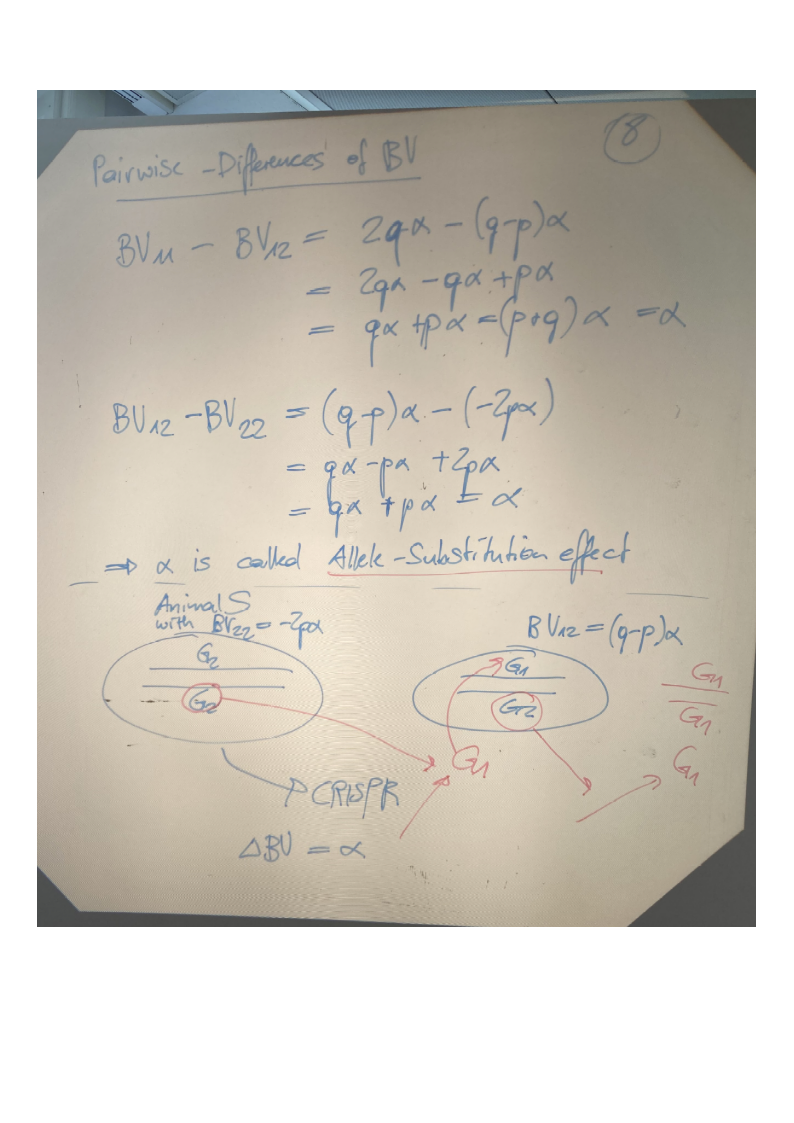 8
Pairwise-Differences of BV
BV₁₁ - BV₁₂ = 2qα - (q-p)α
= 2qα - qα + pα
= qα + pα = (p+q)α = α
BV₁₂ - BV₂₂ = (q-p)α - (-2pα)
= qα - pα + 2pα
= qα + pα = α
⇒ α is called Allele-Substitution effect
Animal S
with BV₂₂ = -2pα
BV₁₂ = (q-p)α
G₂
G₂
G₁
G₂
G₁
G₁
G₁
G₁
CRISPR
ΔBV = α